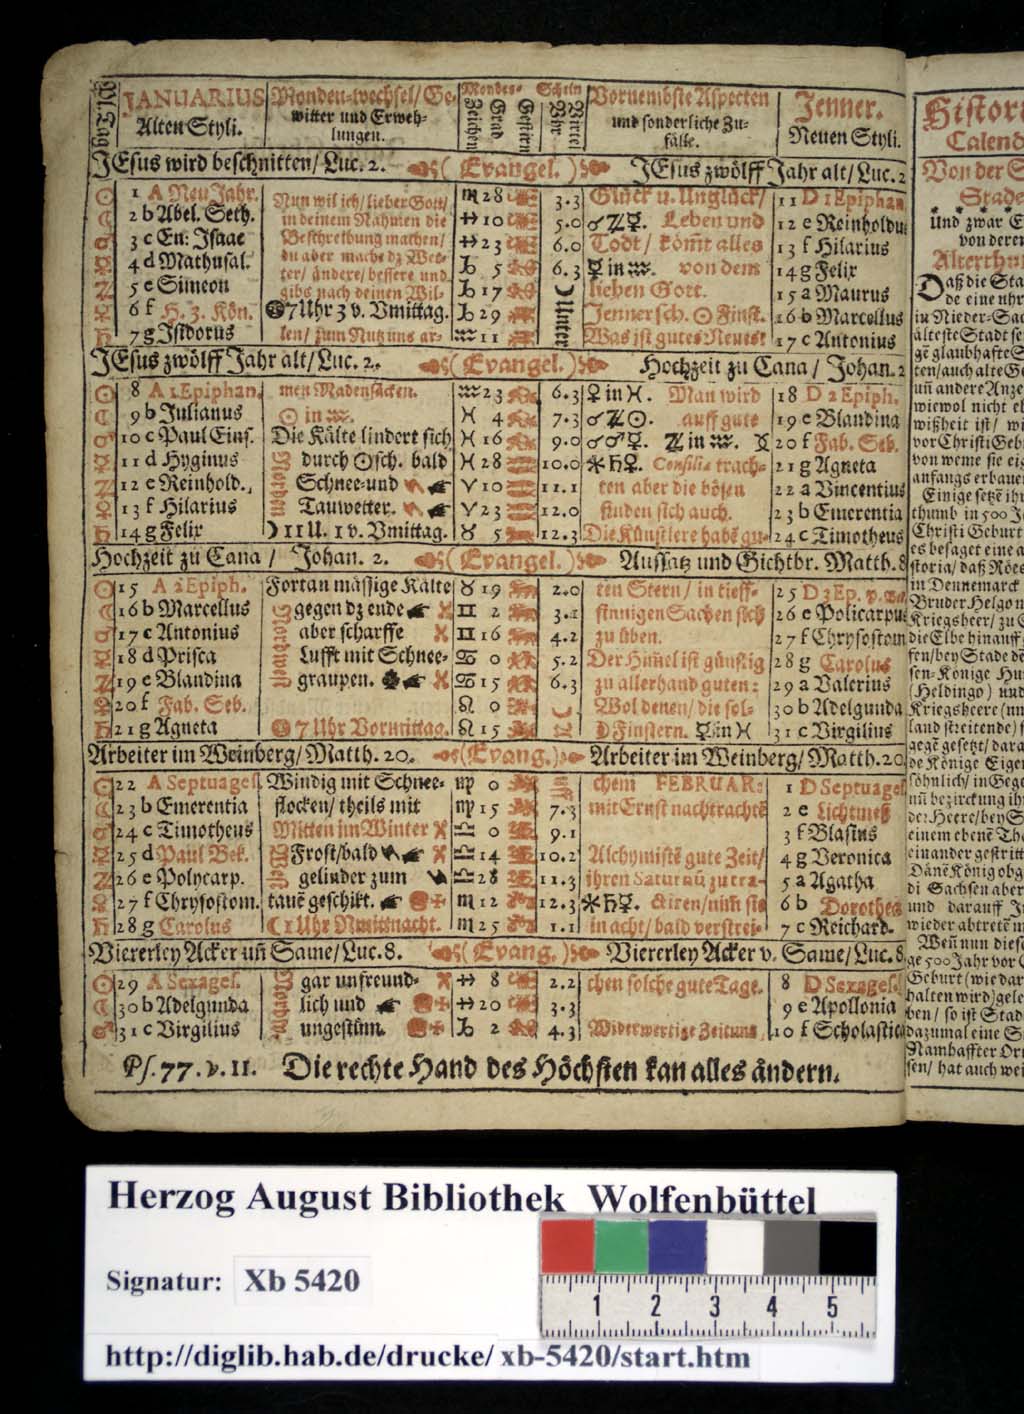 JANUARIUS Monden-wechsel/ Ge- Mondes- Schein Vornembste Aspecten Jenner.
Alten Styli. witter und Erweh- und sonderliche Zu- Neuen Styli.
lungen. fälle.
JEsus wird beschnitten/ Luc. 2. (Evangel.) JEsus zwölff Jahr alt/ Luc. 2
☉ 1 A Neu Jahr. Nun wil ich/ lieber Gott/ ♏ 28 3.3 Glück u. Unglück/ 11 D 1 Epiphan.
☾ 2 b Abel. Seth. in deinem Nahmen die ♐ 10 5.0 ☌ ♃ ☿. Leben und 12 e Reinholdu
♂ 3 c En. Isaac Beschreibung machen/ ♐ 23 6.0 Todt/ komt alles 13 f Hilarius
☿ 4 d Mathusal. du aber machs dz Wet- ♑ 5 6.3 ☿ in ♒. von dem 14 g Felix
♃ 5 e Simeon ter/ ändere/ bessere und ♑ 17 lieben Gott. 15 a Maurus
♀ 6 f H. 3. Kön. gibs nach deinen Wil- ♑ 29 Jenner sch. ☉ Finst. 16 b Marcellus
7 Uhr 3 v. Vmittag.
♄ 7 g Isidorus len/ zum Nutz uns ar- ♒ 11 Was ist gutes Neues? 17 c Antonius
JEsus zwölff Jahr alt/ Luc. 2. (Evangel.) Hochzeit zu Cana / Johan. 2
☉ 8 A 1 Epiphan. men Madensäcken. ♒ 23 6.3 ♀ in ♓. Man wird 18 D 2 Epiph.
☾ 9 b Julianus ☉ in ♒. ♓ 4 7.3 ☌ ♃ ☉. auff gute 19 e Blandina
♂ 10 c Paul Eins. Die Kälte lindert sich ♓ 16 9.0 ☌ ♂ ☿. ♃ in ♒. 20 f Fab. Seb.
☿ 11 d Hyginus durch ☉ sch. bald ♓ 28 10.0 ⚹ ♄ ♀. Consilia trach- 21 g Agneta
♃ 12 e Reinhold. Schnee und ♈ 10 11.1 ten aber die bösen 22 a Vincentius
♀ 13 f Hilarius Tauwetter. ♈ 23 12.0 finden sich auch. 23 b Emerentia
♄ 14 g Felix ☽ 11 U. 1 v. Vmittag. ♉ 5 12.3 Die Künstlere habē gu- 24 c Timotheus
Hochzeit zu Cana / Johan. 2. (Evangel.) Aussatz und Gichtbr. Matth. 8
☉ 15 A 2 Epiph. Fortan mässige Kälte ♉ 19 2.0 ten Stern/ in tieff- 25 D 3 Ep.
☾ 16 b Marcellus gegen dz ende ♊ 2 3.1 sinnigen Sachen sich 26 e Policarpu
♂ 17 c Antonius aber scharffe ♊ 16 4.2 zu üben. 27 f Chrysostom
☿ 18 d Prisca Lufft mit Schnee- ♋ 0 5.2 Der Himel ist günstig 28 g Carolus
♃ 19 e Blandina graupen. ♋ 15 6.3 zu allerhand guten: 29 a Valerius
♀ 20 f Fab. Seb. ♌ 0 Wol denen/ die sol- 30 b Adelgunda
♄ 21 g Agneta 7 Uhr Vormittag. ♌ 15 ☽ Finstern. ☿ in ♓ 31 c Virgilius
Arbeiter im Weinberg/ Matth. 20. (Evang.) Arbeiter im Weinberg/ Matth. 20
☉ 22 A Septuages. Windig mit Schnee- ♍ 0 chem FEBRUAR: 1 D Septuages
☾ 23 b Emerentia flocken/ theils mit ♍ 15 7.3 mit Ernst nachtrachtē 2 e Lichtmeß
♂ 24 c Timotheus Mitten im Winter ♎ 0 9.1 3 f Blasius
☿ 25 d Paul Bek. Frost/ bald ♎ 14 10.2 Alchymistē gute Zeit/ 4 g Veronica
♃ 26 e Polycarp. gelinder zum ♎ 28 11.3 ihren Saturnū zu tra- 5 a Agatha
♀ 27 f Chrysostom. tauē geschikt. ♏ 12 12.3 ⚹ ♄ ☿. ctiren/ nim sie 6 b Dorothea
♄ 28 g Carolus ☾ 1 Uhr Nmittnacht. ♏ 25 1.1 in acht/ bald verstrei- 7 c Reichard.
Viererley Acker uñ Same/ Luc. 8. (Evang.) Viererley Acker v. Same/ Luc. 8
☉ 29 A Sexages. gar unfreund- ♐ 8 2.2 chen solche gute Tage. 8 D Sexages.
☾ 30 b Adelgunda lich und ♐ 20 3.3 9 e Apollonia
♂ 31 c Virgilius ungestüm. ♑ 2 4.3 Widerwertige Zeitung 10 f Scholastic
Ps. 77. v. 11. Die rechte Hand des Höchsten kan alles ändern.
Histor
Calend
Von der S
Stade
Und zwar E
von deren
Alterthu
Daß die Sta
de eine uhr
in Nieder-Sac
älteste Stadt se
gē glaubhaffte S
ten/ auch alte Ge
uñ andere Anze
wiewol nicht el
wißheit ist/ wi
vor Christi Geb
von weme sie eig
anfangs erbauet
Einige setzē ihr
thumb in 500 J
Christi Geburt
es besaget eine a
storia/ daß Röes
in Dennemarck
Bruder Helgo n
Kriegsheer/ zu
die Elbe hinauff
sen/ bey Stade de
sen-Könige Hu
(Heldingo) und
Kriegsheere (nn
land streitende) f
gegē gesetzt/ dara
de Könige Eigen
söhnlich/ in Gege
uñ bezirckung ih
der Heere/ bey S
einem ebenē Th
einander gestritt
Dänē König obg
di Sachsen aber
und darauff J
wieder abtretē m
Weñ nun diese
ge 500 Jahr vor
Geburt (wie dar
halten wird) gele
ben/ so ist Stad
dazumal eine S
Namhaffter Ort
sen/ hat auch wei
Herzog August Bibliothek Wolfenbüttel
Signatur: Xb 5420
1 2 3 4 5
http://diglib.hab.de/drucke/xb-5420/start.htm